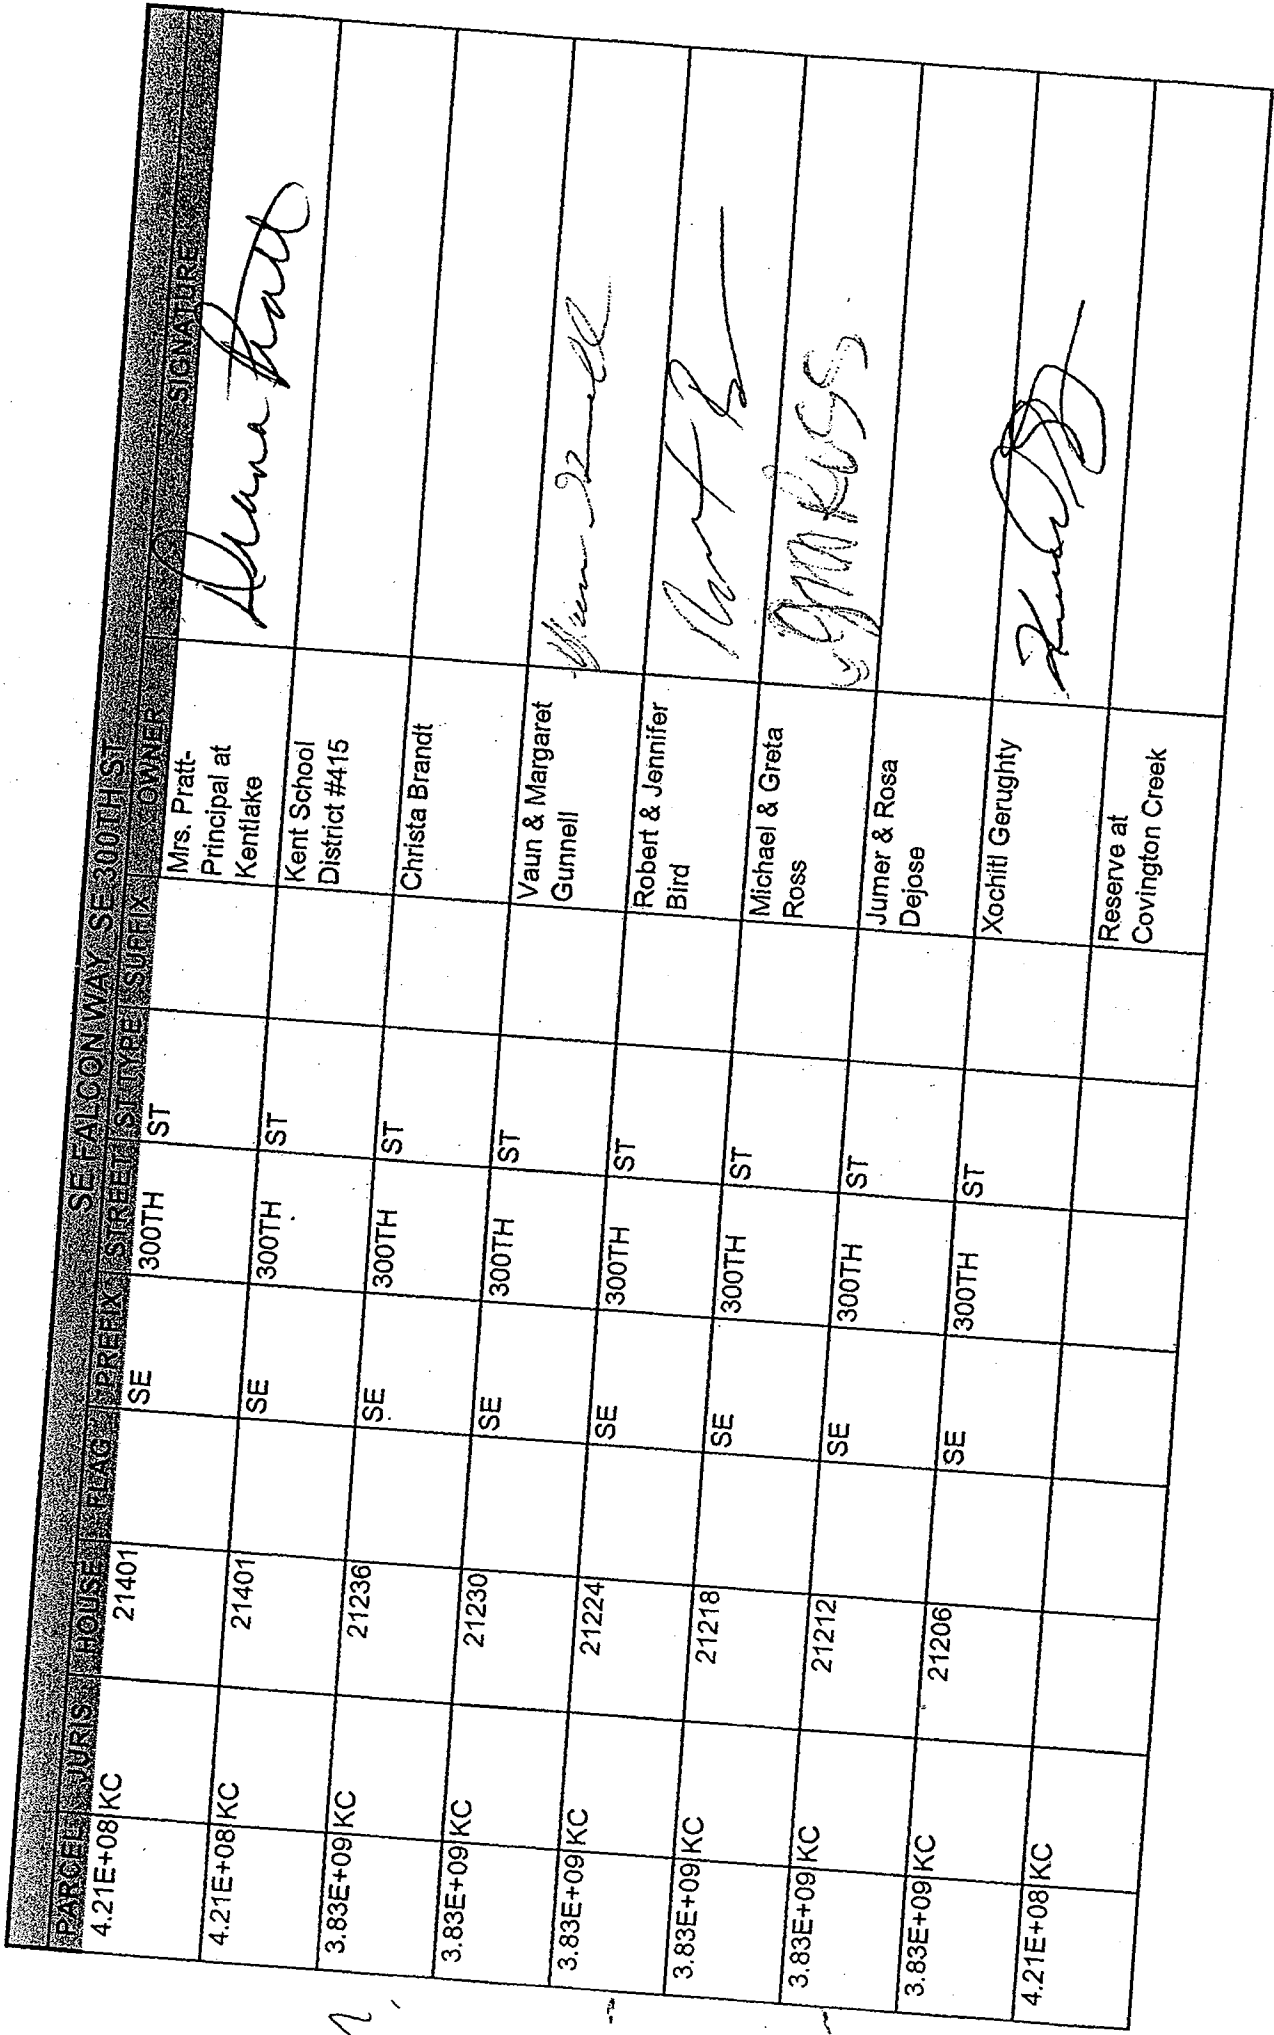 SE FALCON WAY_SE 300TH ST
PARCEL JURIS HOUSE FLAG PREFIX STREET ST TYPE SUFFIX OWNER SIGNATURE
4.21E+08 KC 21401 SE 300TH ST Mrs. Pratt-
Principal at
Kentlake
4.21E+08 KC 21401 SE 300TH ST Kent School
District #415
3.83E+09 KC 21236 SE 300TH ST Christa Brandt
3.83E+09 KC 21230 SE 300TH ST Vaun & Margaret
Gunnell
3.83E+09 KC 21224 SE 300TH ST Robert & Jennifer
Bird
3.83E+09 KC 21218 SE 300TH ST Michael & Greta
Ross GMRoss
3.83E+09 KC 21212 SE 300TH ST Jumer & Rosa
Dejose
3.83E+09 KC 21206 SE 300TH ST Xochitl Gerughty
4.21E+08 KC Reserve at
Covington Creek